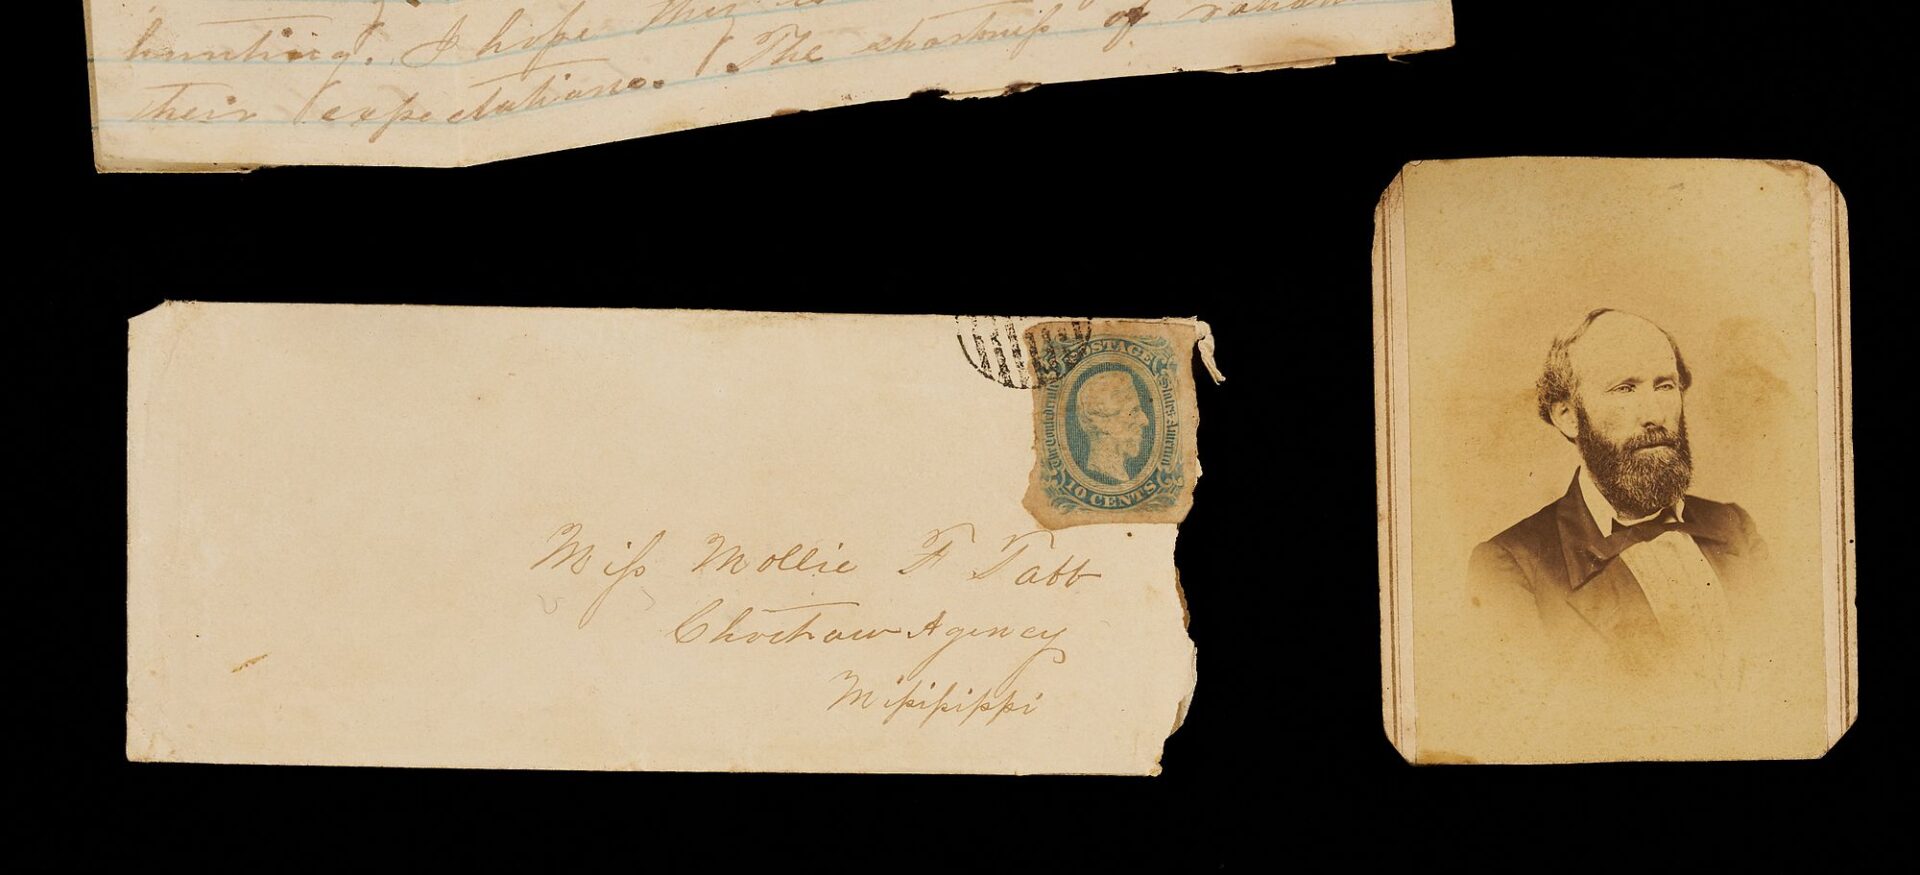 hunting. I hope they
their expectations. The shortness of
POSTAGE
The Confederate States America
10 CENTS
Miss Mollie F Tabb
Choctaw Agency
Missisippi